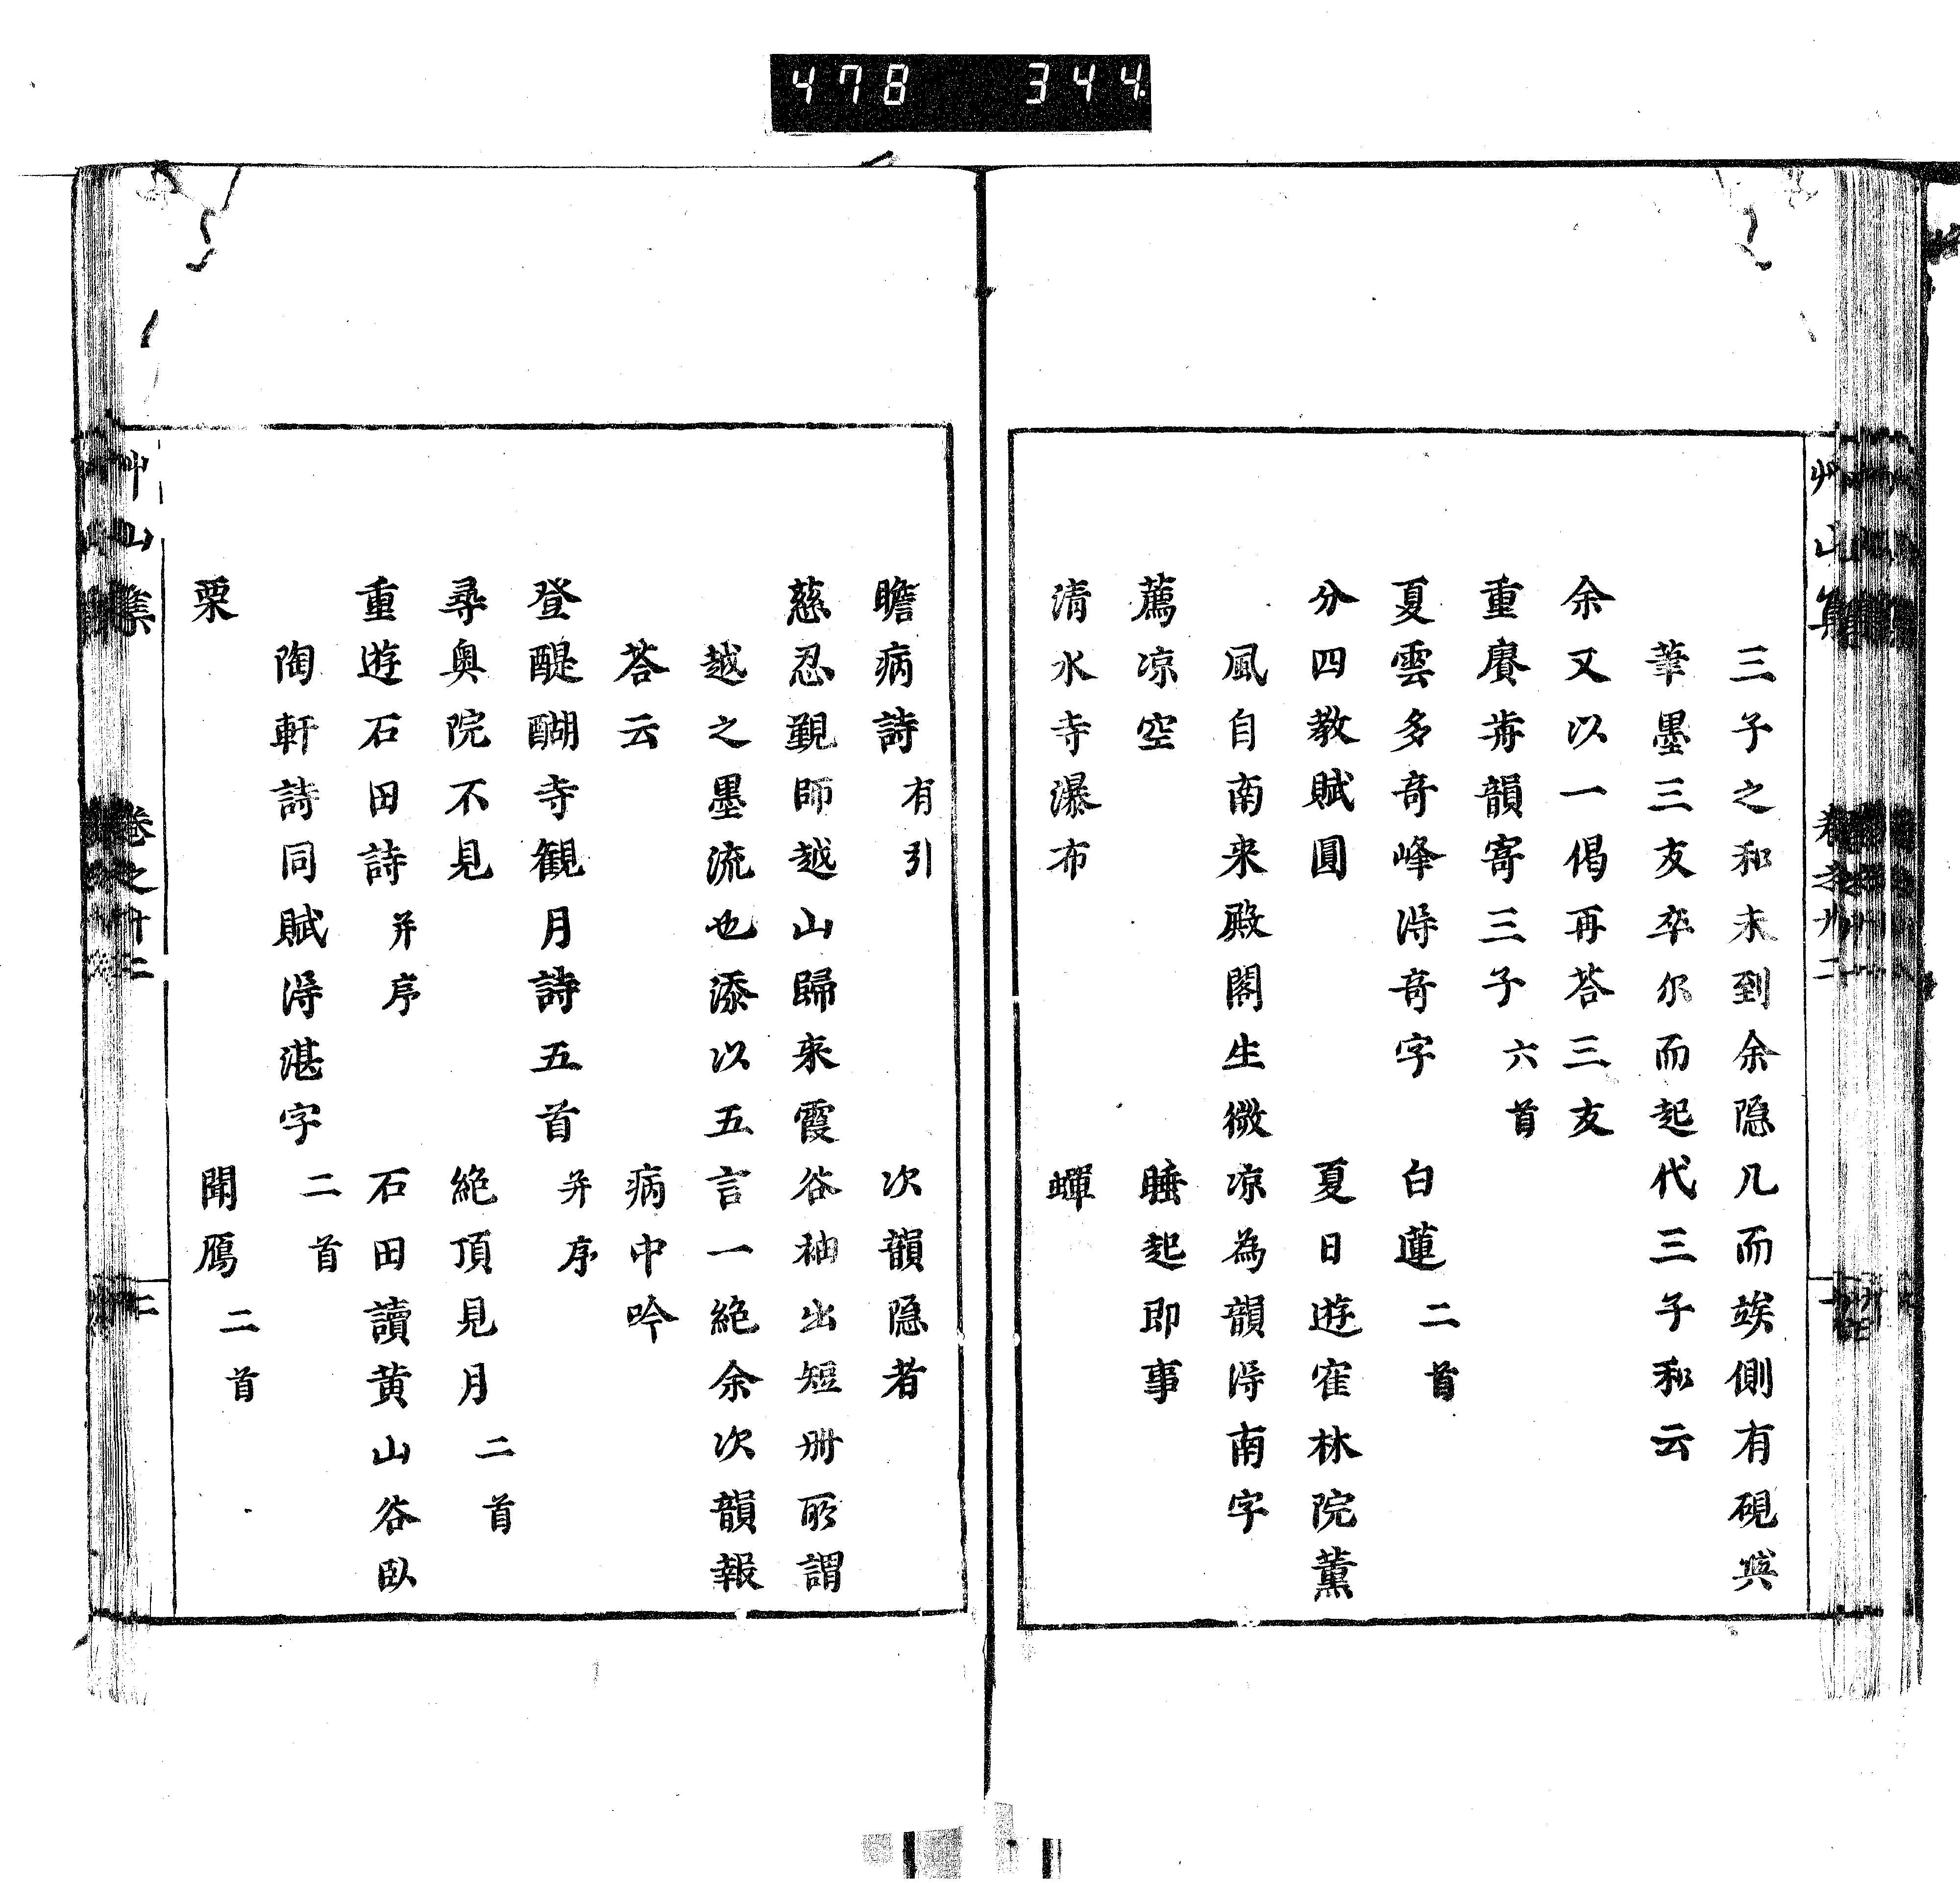 478 344
三子之和未到余隠几而竢側有硯與
筆墨三友卒尔而起代三子和云
余又以一偈再荅三友
重賡前韻寄三子 六首
夏雲多奇峰得奇字 白蓮 二首
分四教賦圓 夏日遊寉林院薫
風自南来殿閣生微凉為韻得南字
薦凉空 睡起即事
清水寺瀑布 蟬
瞻病詩 有引 次韻隠者
慈忍覲師越山歸来霞谷袖出短册所謂
越之墨流也添以五言一絶余次韻報
荅云 病中吟
登醍醐寺観月詩五首 并序
尋奥院不見 絶頂見月 二首
重遊石田詩 并序 石田讀黄山谷臥
陶軒詩同賦得湛字 二首
栗 聞鴈 二首
艸山集 卷之十二 二